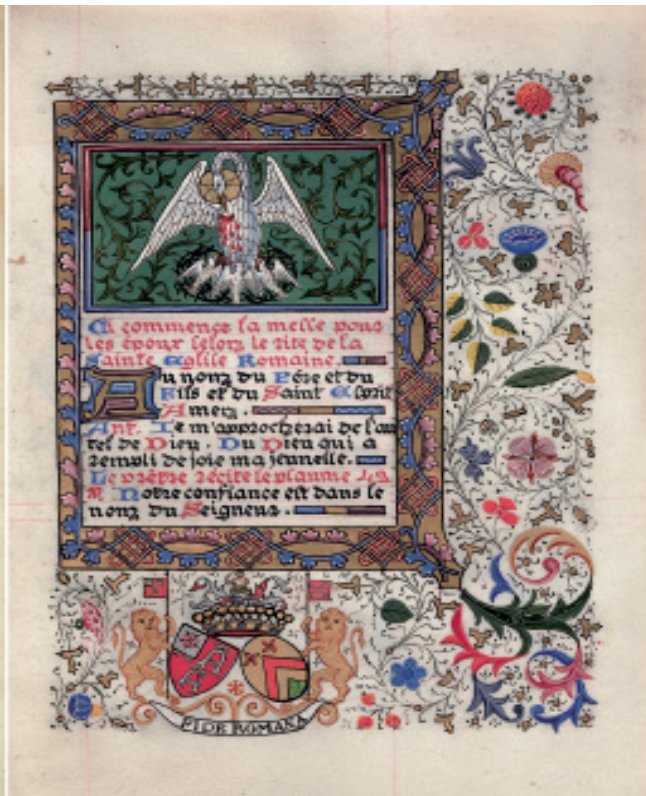 Ci commence la messe pour
les époux selon le rite de la
Sainte Eglise Romaine.
Au nom du Père et du
Fils et du Saint Esprit
Amen.
Ant. Je m'approcherai de l'au
tel de Dieu. Du Dieu qui a
rempli de joie ma jeunesse.
Le prêtre récite le psaume
Notre confiance est dans le
nom du Seigneur.
FIDE ROMANA